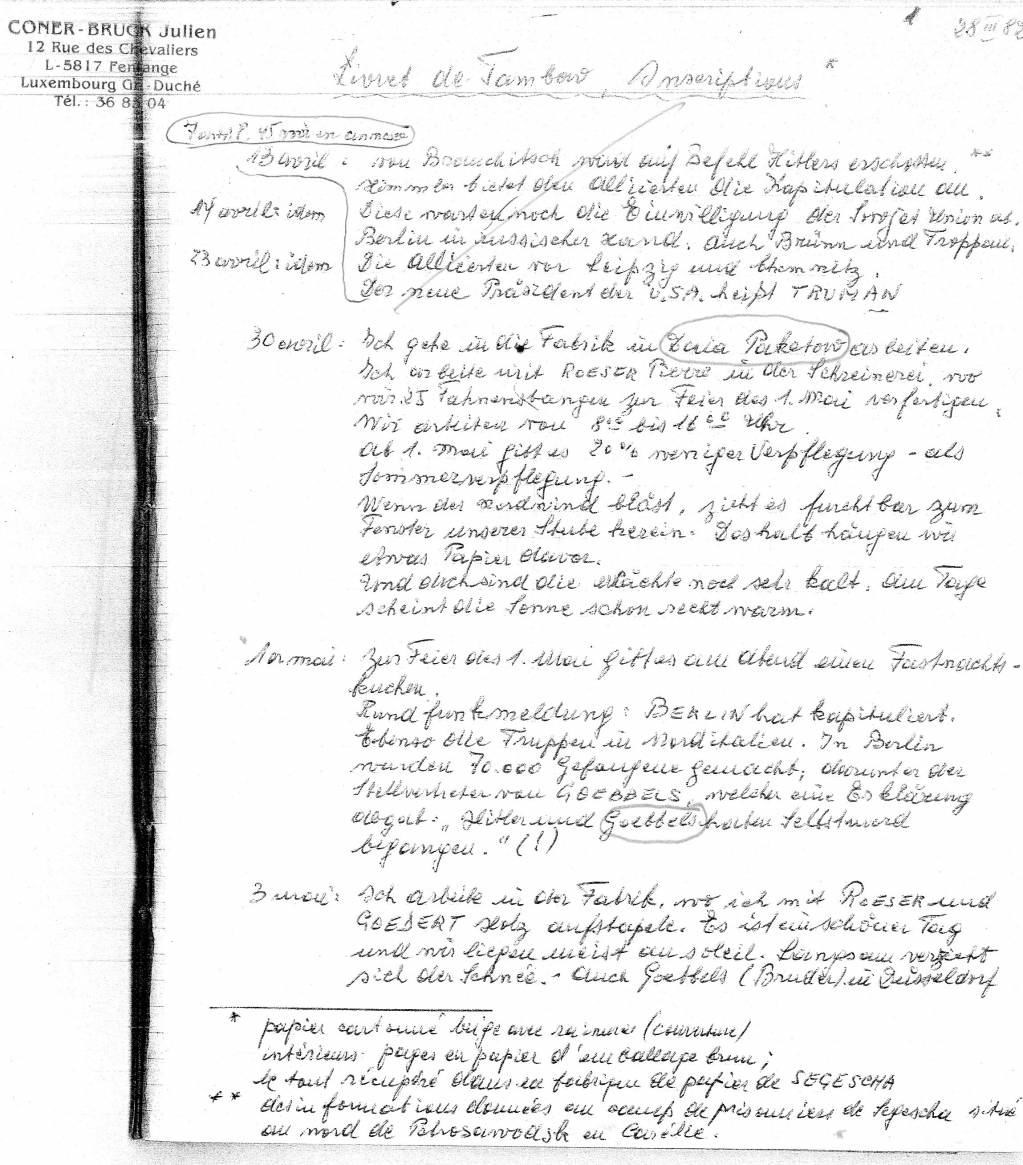 CONER-BRUCK Julien
12 Rue des Chevaliers
L-5817 Fentange
Luxembourg Gr.-Duché
Tél.: 36 83 04
28 III 82
Livret de Tambow, Inscriptions *
en
13 avril : von Brauchitsch wird auf Befehl Hitlers erschossen. **
Himmler bietet den Alliierten die Kapitulation an.
14 avril: idem Diese warten noch die Einwilligung der Sowjet Union ab.
Berlin in russischer Hand. Auch Brünn und Troppau.
23 avril: idem Die Alliierten vor Leipzig und Chemnitz.
Der neue Präsident der U.S.A. heißt TRUMAN
30 avril : Ich gehe in die Fabrik in arbeiten.
Ich arbeite mit ROESER Pierre in der Schreinerei, wo
wir 25 Fahnenstangen zur Feier des 1. Mai verfertigen.
Wir arbeiten von 8°° bis 16°° Uhr.
Ab 1. Mai gibt es 20% weniger Verpflegung - als
Sommerverpflegung. -
Wenn der Nordwind bläst, zieht es furchtbar zum
Fenster unserer Stube herein. Deshalb hängen wir
etwas Papier davor.
Und doch sind die Nächte noch sehr kalt. Am Tage
scheint die Sonne schon recht warm.
1er mai : Zur Feier des 1. Mai gibt es am Abend einen Fastnachts-
kuchen.
Rundfunkmeldung : BERLIN hat kapituliert.
Ebenso die Truppen in Norditalien. In Berlin
wurden 70.000 Gefangene gemacht, darunter der
Stellvertreter von GOEBBELS, welcher eine Erklärung
abgab: „Hitler und Goebbels haben Selbstmord
begangen." (!)
3 mai : Ich arbeite in der Fabrik, wo ich mit ROESER und
GOEDERT Holz aufstapele. Es ist ein schöner Tag
und wir liegen meist au soleil. Langsam verzieht
sich der Schnée. - Auch Goebbels (Bruder) in Düsseldorf
* papier cartonné beige avec rainures (couverture)
intérieur: pages en papier d'emballage brun ;
le tout récupéré dans la fabrique de papier de SEGESCHA
** des informations données au camp de prisonniers de Segescha situé
au nord de Petrosawodsk en Carélie.